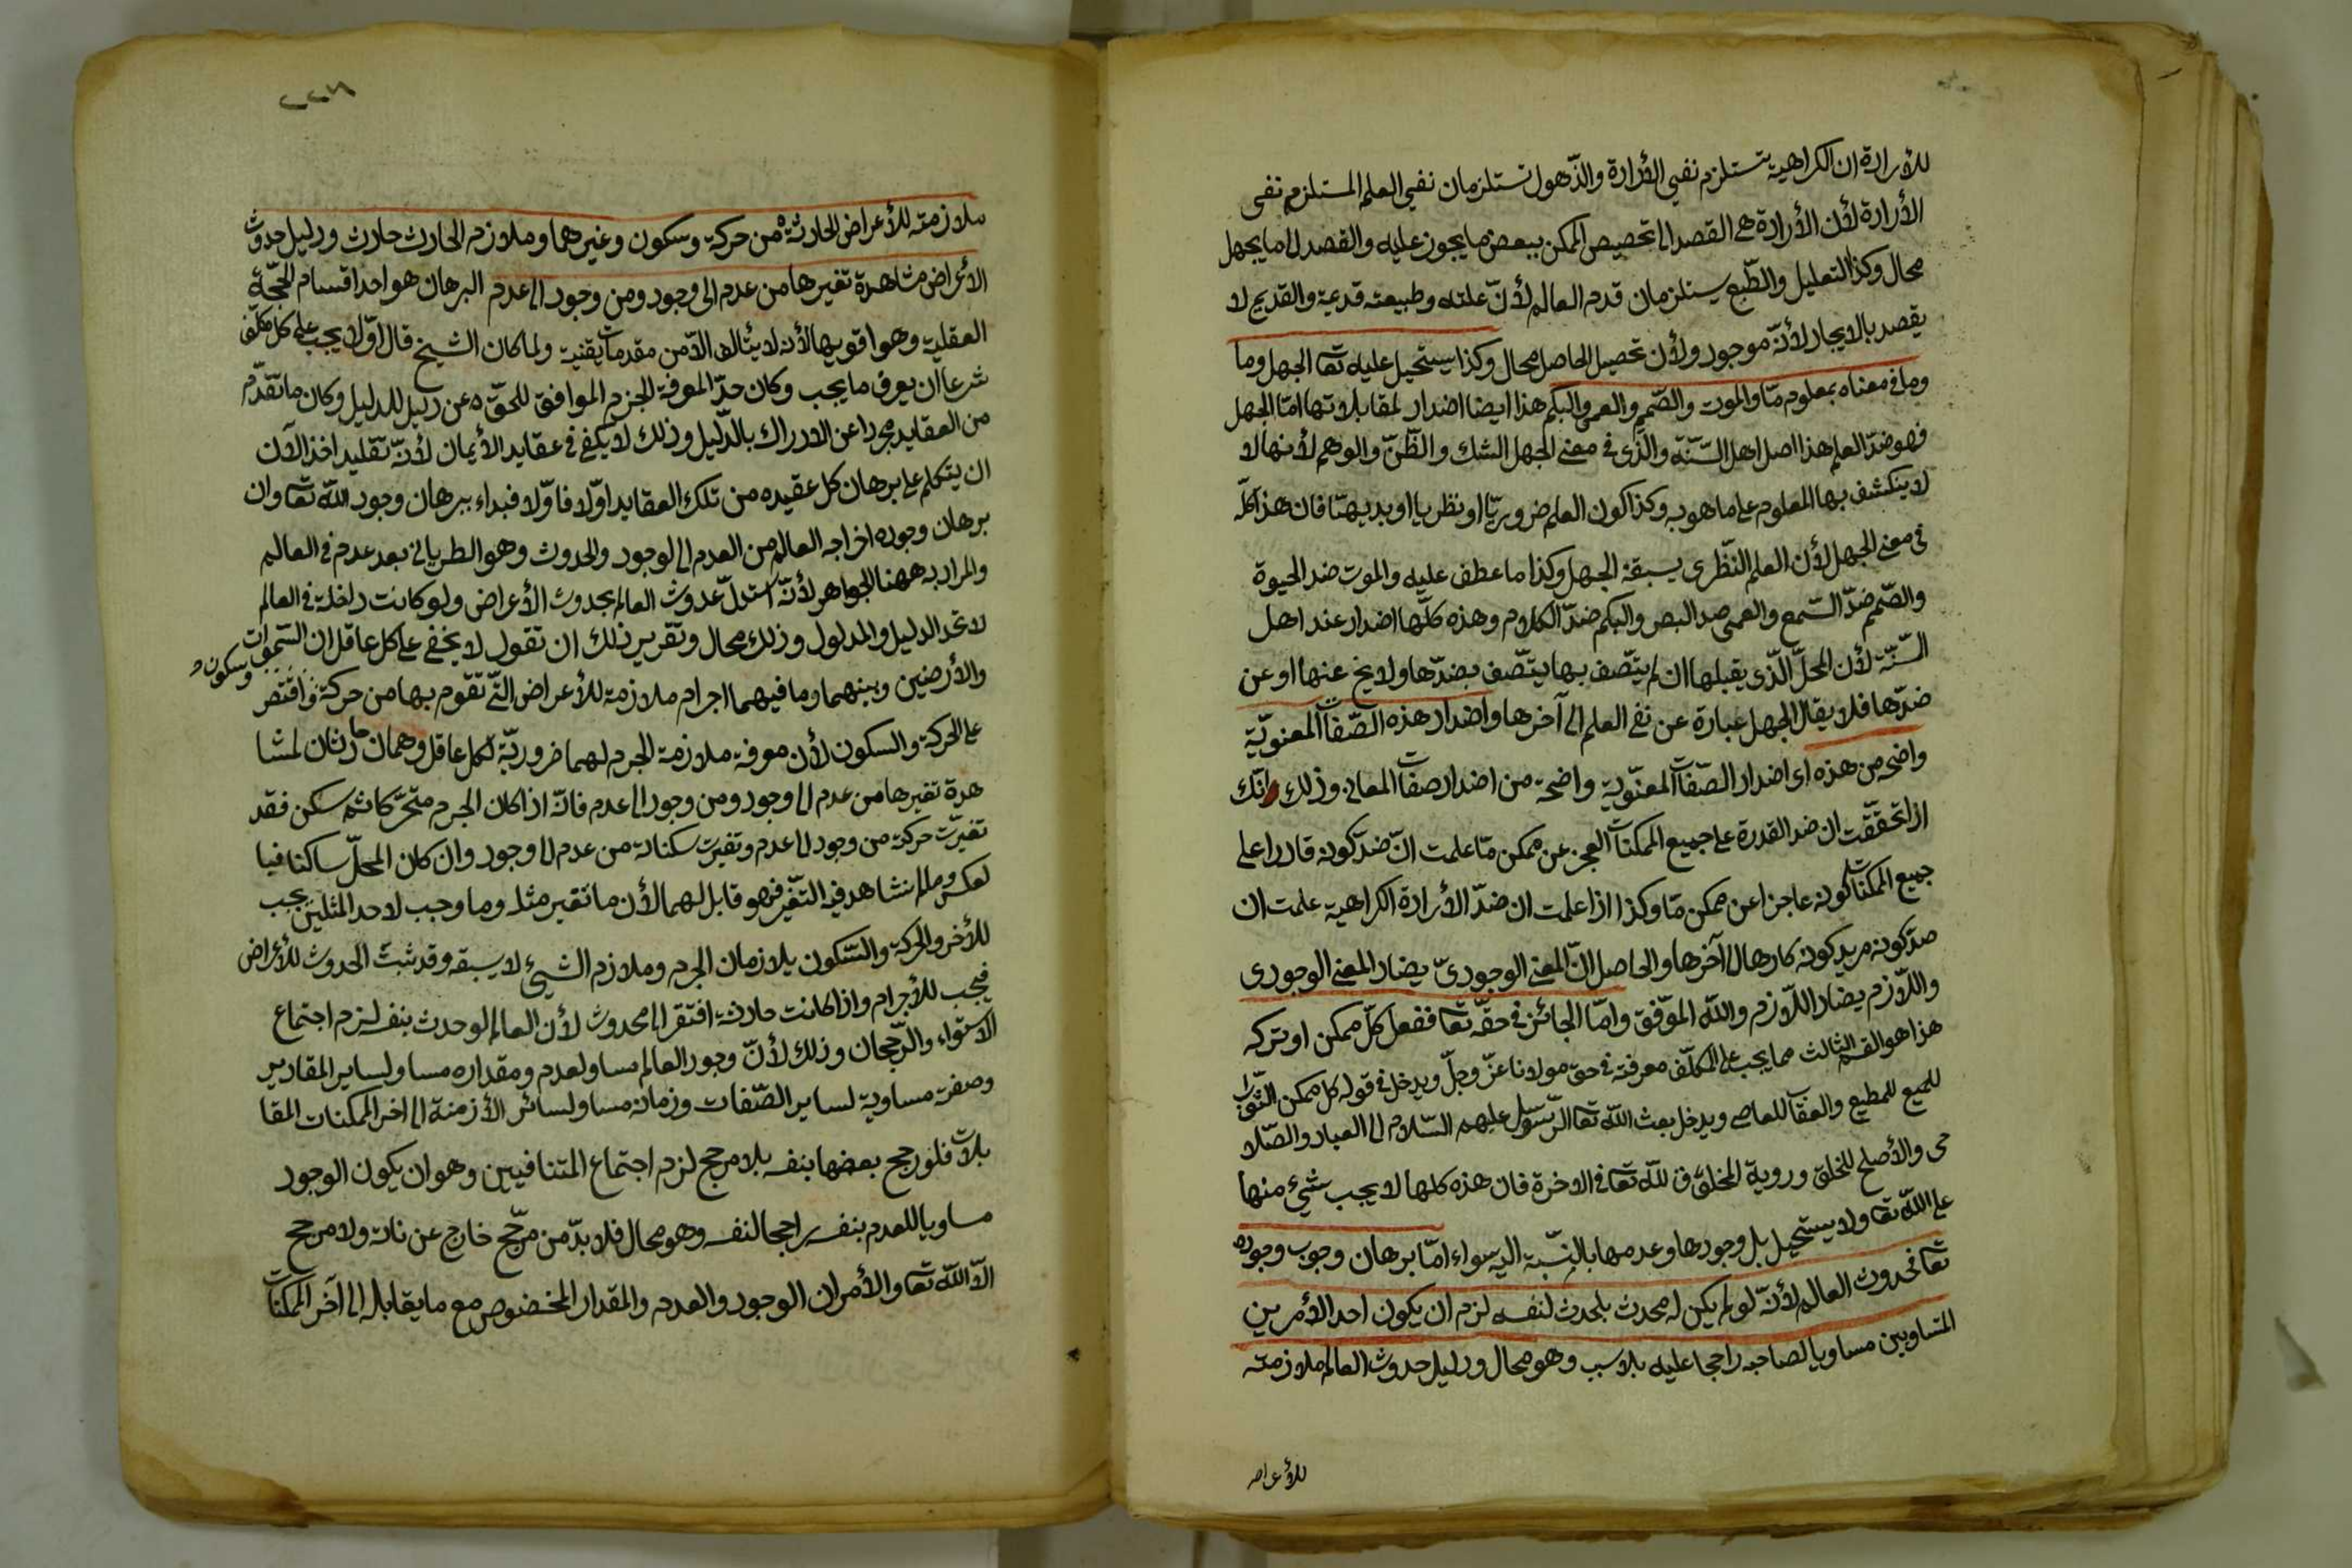 للأرادة ان الكراهية تستلزم نفي الأرادة والذّهول تستلزمان نفي العلم المستلزم نفي
الأرادة لأن الأرادة هي القصد الى تخصيص الممكن ببعض ما يجوز عليه والقصد الى ما يجهل
محال وكذا التعليل والطّبع يستلزمان قدم العالم لأنّ علته وطبيعته قديمة والقديم لا
يقصد بالايجاد لأنّه موجود ولأن تحصيل الحاصل محال وكذا يستحيل عليه تعا الجهل وما
وما في معناه بمعلوم مّا والموت والصّمم والعمى والبكم هذا ايضا اضداد لمقابلاتها امّا الجهل
فهو ضدّ العلم هذا اصل اهل السّنّة والّذي في معنى الجهل الشك والظّنّ والوهم لأنها لا
لا ينكشف بها المعلوم على ما هو به وكذا كون العلم ضروريّا او نظريا او بديهيّا فان هذا كلّه
في معنى الجهل لأن العلم النّظري يسبقه الجهل وكذا ما عطف عليه والموت ضد الحيوة
والصّمم ضدّ السّمع والعمى ضد البصر والبكم ضدّ الكلام وهذه كلّها اضداد عند اهل
السّنّة لأن المحلّ الّذي يقبلها ان لم يتّصف بها يتّصف بضدّها ولا يخ عنها او عن
ضدّها فلا يقال الجهل عبارة عن نفي العلم الى آخرها واضداد هذه الصّفات المعنويّة
واضح من هذه اي اضداد الصّفات المعنويّة واضحة من اضداد صفات المعاني وذلك انّك
اذا تحققت ان ضد القدرة على جميع الممكنات العجز عن ممكن مّا علمت انّ ضدّ كونه قادرا على
جميع الممكنات كونه عاجزا عن ممكن مّا وكذا اذا علمت ان ضدّ الأرادة الكراهية علمت ان
ضدّ كونه مريد كونه كارها الى آخرها والحاصل انّ المعنى الوجوديّ يضاد المعنى الوجودي
واللّازم يضاد اللّازم والله الموّفق وامّا الجائز في حقّه تعا ففعل كلّ ممكن او تركه
هذا هو القسم الثالث مما يجب على المكلّف معرفته في حق مولانا عزّ وجلّ ويدخل في قوله كل ممكن الثّواب
للجميع للمطيع والعقاب للعاصي ويدخل بعث الله تعا الرّسول عليهم السّلام الى العباد والصّلا
حى والأصلح للخلق وروية المخلوق لله تعا في الاخرة فان هذه كلها لا يجب شيء منها
على الله تعا ولا يستحيل بل وجودها وعدمها بالنّسبة اليه سواء امّا برهان وجوب وجوده
تعا فحدوث العالم لأنّه لو لم يكن له محدث بل حدث لنفسه لزم ان يكون احد الأمرين
المتساويين مساويا لصاحبه راجحا عليه بلا سبب وهو محال ودليل حدوث العالم ملازمته
للأعراض
ملازمته للأعراض الحادثة من حركة وسكون وغيرهما وملازم الحادث حادث ودليل حدوث
الأعراض مشاهدة تغيرها من عدم الى وجود ومن وجود الى عدم البرهان هو احد اقسام الحجّة
العقلية وهو اقويها لأنه لا يتألف الّا من مقدمات يقنية ولما كان الشيخ قال اوّلا يجب على كل مكلّف
شرعا ان يعرف ما يجب وكان حدّ المعرفة الجزم الموافق للحقّ عن دليل للدليل وكان ما تقدّم
من العقايد مجردا عن الادراك بالدّليل وذلك لا يكفي في عقايد الأيمان لأنّه تقليد اخذ الآن
ان يتكلم على برهان كل عقيده من تلك العقايد اوّلا فاوّلا فبداء ببرهان وجود الله تعا وان
برهان وجوده اخراجه العالم من العدم الى لوجود والحدوث وهو الطريان بعد عدم في العالم
والمراد به ههنا الجواهر لأنّه استدلّ حدوث العالم بحدوث الأعراض ولو كانت داخلة في العالم
لاتحد الدليل والمدلول وذلك محال وتقرير ذلك ان تقول لا يخفى على كل عاقل ان السّموات
والأرضين وبينهما وما فيهما اجرام ملازمة للأعراض الّتي تقوم بها من حركة وسكون واقتصر
على الحركة والسكون لأن معرفة ملازمة الجرم لهما ضروريّة لكل عاقل وهما حادثان لمشا
هدة تغيرها من عدم الى وجود ومن وجود الى عدم فانّه اذا كان الجرم متحرّكا ثم سكن فقد
تغيرّت حركة من وجود الى عدم وتغيرت سكناته من عدم الى وجود وان كان المحلّ ساكنا فيا
لعكس وما لم نشاهد فيه التغّير فهو قابل لهما لأن ما تغير مثله وما وجب لاحد المثلين يجب
للأخر والحركة والسّكون يلازمان الجرم وملازم الشيئ لا يسبقه وقد ثبت الحدوث للأعراض
فيجب للأجرام واذا كانت حادثة افتقر الى محدوث لأن العالم لو حدث بنفسه لزم اجتماع
الأستواء والرّجحان وذلك لأنّ وجود العالم مساو لعدم ومقداره مساو لساير المقادير
وصفته مساوية لساير الصّفات وزمانه مساو لسائر الأزمنة الى اخر الممكنات المقا
بلات فلو رجح بعضها بنفسه بلا مرجح لزم اجتماع المتنافيين وهو ان يكون الوجود
مساويا للعدم بنفسه راجحا لنفسه وهو محال فلا بدّ من مرجّح خارج عن ذاته ولا مرجح
الّا الله تعا والأمران الوجود والعدم والمقدار المخصوص مع ما يقابله الى آخر الممكنات